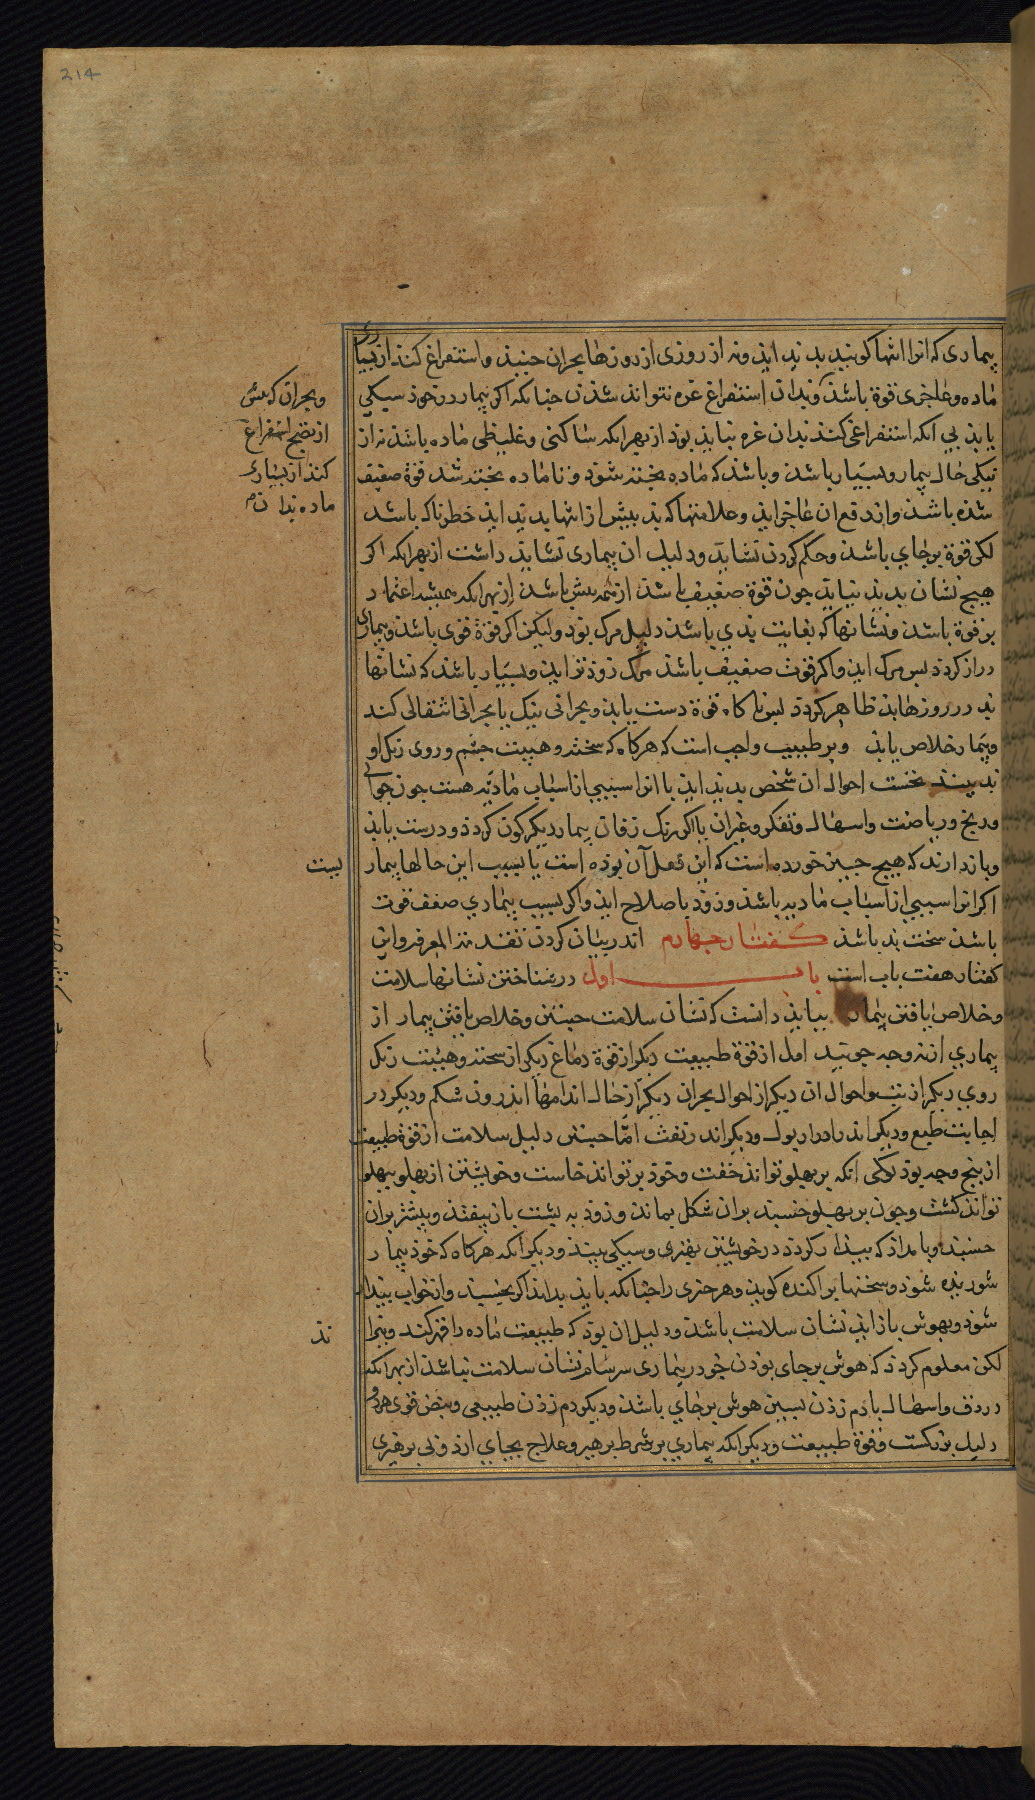 214
بیماری که انرا انتها کویند بدید اید ونه از روزی از روزهابحران جنبد واستفراغ کند از بسیاری
ماده وعاجزی قوة باشد وبدان استفراغ غره نتواند شدن جنانکه اکر بیمار در خوذ سبکی
یابد بی انکه استفراغی کند بدان غره نباید بوذ از بهر انکه ساکنی وغلیظی ماده باشد نه از
نیکی حال بیمار وبسیار باشد وباشد که ماده بخته شوذ وتا ماده بخته شد قوة ضعیف
شده باشد واز دفع ان عاجز اید وعلامتها که بذ بیش از انتها بدید اید خطرناک باشد
لکن قوة برجای باشد وحکم کردن نشاید ودلیل ان بیماری نشاید داشت از بهر انکه اکر
هیج نشان بد بدید نیاید جون قوة ضعیف باشد از همه بیش باشد از بهر انکه همیشه اعتماد
بر قوة باشد ونشانها که بغایت بدی باشد دلیل مرک بود ولیکن اکر قوة قوی باشد وبیماری
دراز کردد بس مرک اید واکر قوت ضعیف باشد مرک زوذتر اید وبسیار باشد که نشانها
بد در روزهابد ظاهر کردد بس ناکاه قوة دست یابد وبحرانی نیک یا بحرانی انتقالی کند
وبیمار خلاص یابد وبر طبیب واجب است که هرکاه که سخنه وهییت جشم وروی زنک او
بد بیند نخست احوال ان شخص بدید اید یا انرا سببی از اسباب مادیه هست جون جوابی
ورنج وریاضت واسهال وتفکر وغیر ان یا اکر رنک زفان بیمار دیکرکون کردد ودرست یابد
وباز دارند که هیج جیز خورده است که این فعل آن بوده است یا بسبب این حالها بیمار
اکر انرا سببی از اسباب مادیه باشد وزود باصلاح اید واکر بسبب بیماری ضعف قوت
باشد سخت بد باشد کفتار جهارم اندر بیان کردن تقدمة المعرفه واین
کفتار هفت باب است باب اول در شناختن نشانها سلامت
وخلاص یافتن بیمار بباید دانست که نشان سلامت جستن وخلاص یافتن بیمار از
بیماری از نه وجه جویند اول از قوة طبیعت دیکر از قوة دماغ دیکر از سخنه وهییت رنک
روی دیکر از نبض واحوال ان دیکر از احوال بحران دیکر از حال اندامها اندرون شکم ودیکر در
اجابت طبع ودیکر اندر ادرار بول ودیکر اندر نفث امّا جستن دلیل سلامت از قوة طبیعت
از بنج وجه بوذ یکی انکه بر بهلو تواند خفت وخوذ بر تواند خاست وخویشتن از بهلو ببهلو
تواند کشت وجون بر بهلو خسبد بران شکل بماند وزوذ به بشت باز نیفتد وبیشتر بران
خسبد وبامداد که بیدار کردد در خویشتن بهتری وسبکی بیند ودیکر انکه هرکاه که خوذ بیمار
شوریده شوذ وسخنها براکنده کوید وهر جیزی را جنانکه باید بداند اکر بخسبد واز خواب بیدار
شوذ وبهوش باز اید نشان سلامت باشد ودلیل ان بوذ که طبیعت ماده را قهر کند وبتوا
لکن معلوم کردد که هوش برجای بودن جز در بیماری سرسام نشان سلامت نباشد از بهر انکه
در دق واسهال تا دم زدن بسین هوش برجای باشد ودیکر دم زدن طبیعی ونبض قوی هر دو
دلیل بزرکست وقوة طبیعت ودیکر انکه بیماری بر شرط برهیز وعلاج بجای ارد ولی برهیزی
وبحران که بیش
از نضج استفراغ
کند از بسیاری
ماده بدان
لیست
ند